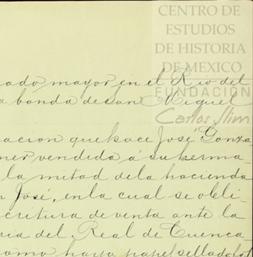 CENTRO DE
ESTUDIOS
DE HISTORIA
DE MEXICO
FUNDACIÓN
Carlos Slim
cado mayor en el Rio del
a banda de San Miguel
acion que hace José Gonza
ner vendida a su herma
la mitad de la hacienda
n José, en la cual se obli
critura de venta ante la
ria del Real de Cuenca
como hasta papel sellado